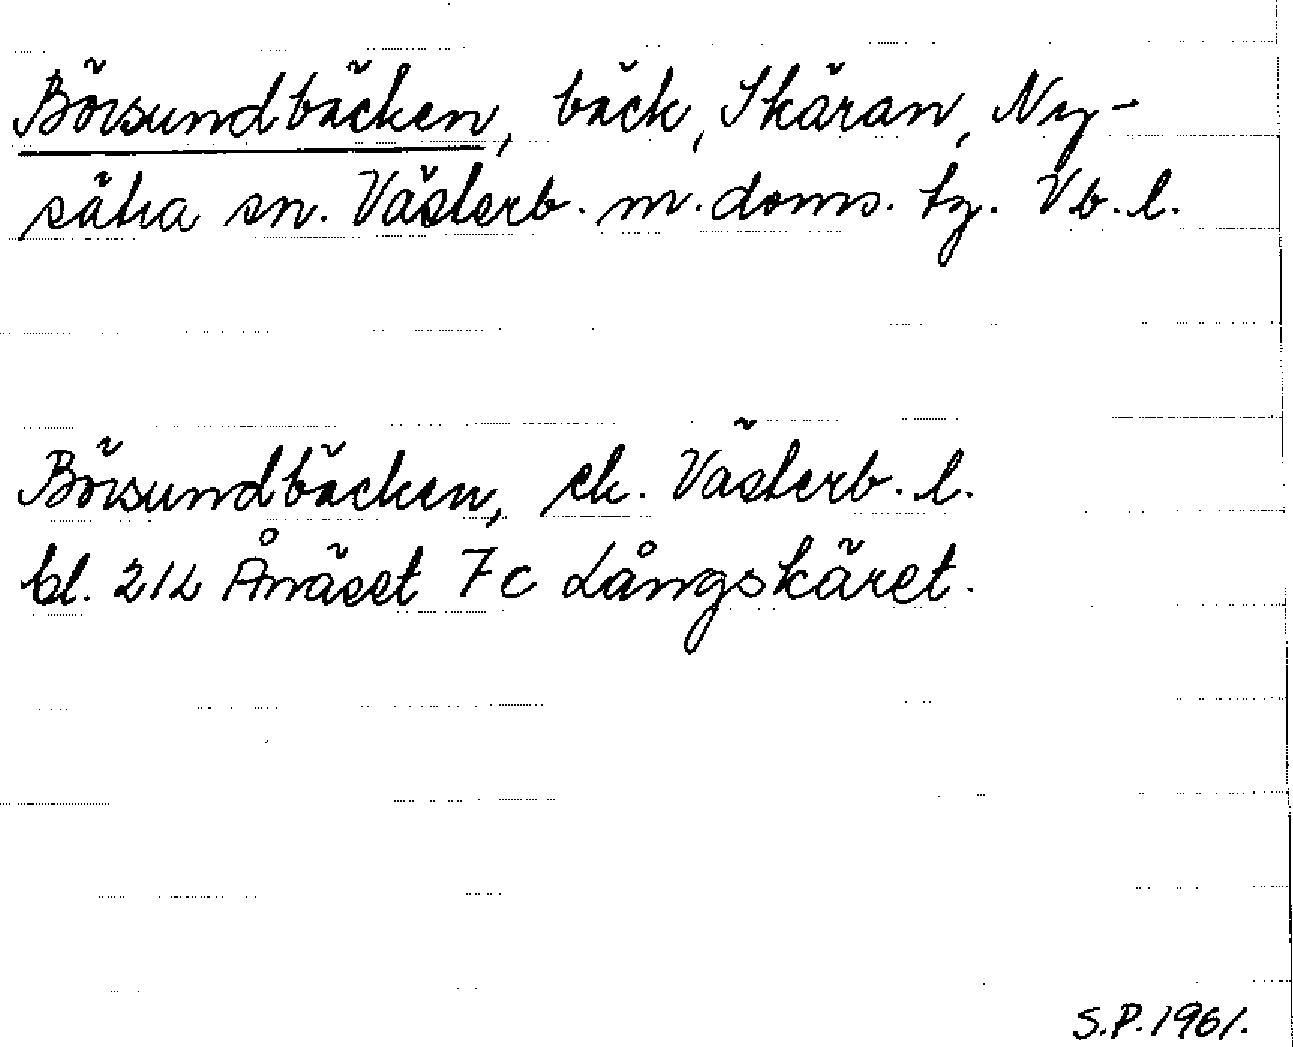 Börsundbäcken, bäck, Skäran, Ny-
sätra sn. Västerb. m. doms. tg. Vb. l.
Börsundbäcken, ek. Västerb. l.
bl. 21L Ånäset 7c Långskäret.
S.P. 1961.